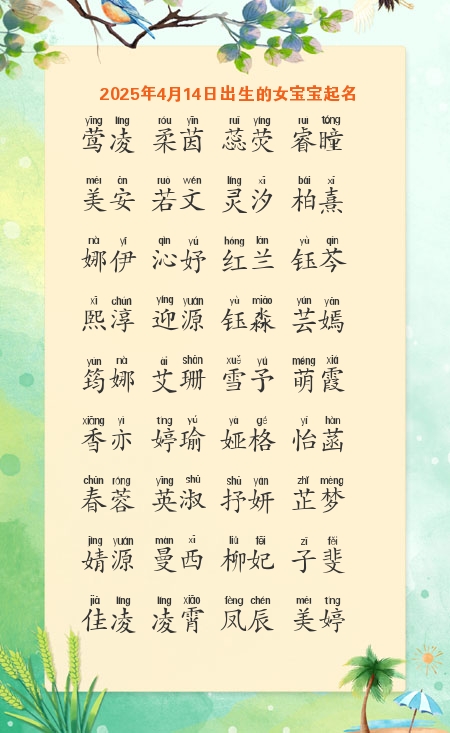 2025年4月14日出生的女宝宝起名
yīng líng róu yīn ruǐ yíng ruì tóng
莺凌 柔茵 蕊荧 睿曈
měi ān ruò wén líng xī bǎi xī
美安 若文 灵汐 柏熹
nà yī qìn yú hóng lán yù qín
娜伊 沁妤 红兰 钰芩
xī chún yíng yuán yù miǎo yún yān
熙淳 迎源 钰淼 芸嫣
yún nà ài shān xuě yǔ méng xiá
筠娜 艾珊 雪予 萌霞
xiāng yì tíng yú yà gé yí hàn
香亦 婷瑜 娅格 怡菡
chūn róng yīng shū shū yán zhǐ mèng
春蓉 英淑 抒妍 芷梦
jìng yuán màn xī liǔ fēi zǐ fěi
婧源 曼西 柳妃 子斐
jiā líng líng xiāo fèng chén měi tíng
佳凌 凌霄 凤辰 美婷